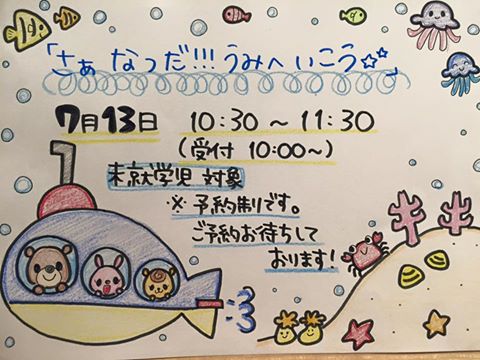 「さぁ なつだ!!! うみへ いこう☆☆」
7月13日 10:30 ～ 11:30
(受付 10:00～)
未就学児 対象
※ 予約制です。
ご予約お待ちして
おります!